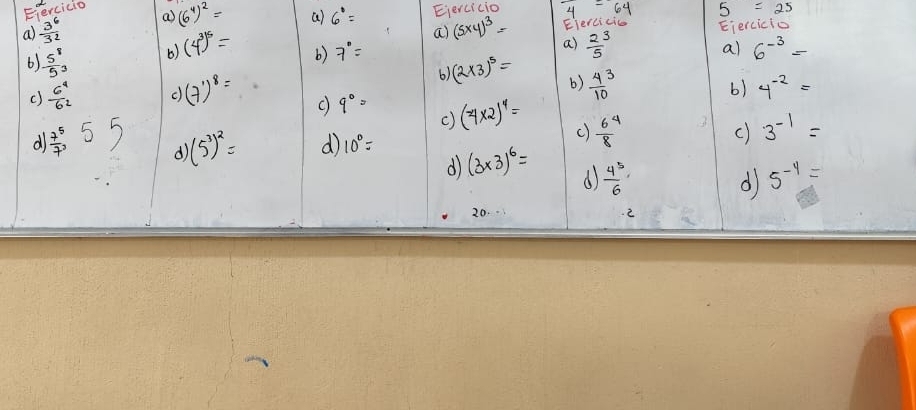 Ejercicio
a) 3⁶/3²
b) 5⁸/5³
c) 6⁴/6²
d) 7⁵/7³ 5 5
a) (6⁴)² =
b) (4³)⁵ =
c) (7¹)⁸ =
d) (5³)² =
a) 6⁰ =
b) 7⁰ =
c) 9⁰ =
d) 10⁰ =
Ejercicio
a) (5x4)³ =
b) (2x3)⁵ =
c) (4x2)⁴ =
d) (3x3)⁶ =
20
4 = 64
Ejercicio
a) 2³/5
b) 4³/10
c) 6⁴/8
d) 4⁵/6
2
5 = 25
Ejercicio
a) 6⁻³ =
b) 4⁻² =
c) 3⁻¹ =
d) 5⁻⁴ =